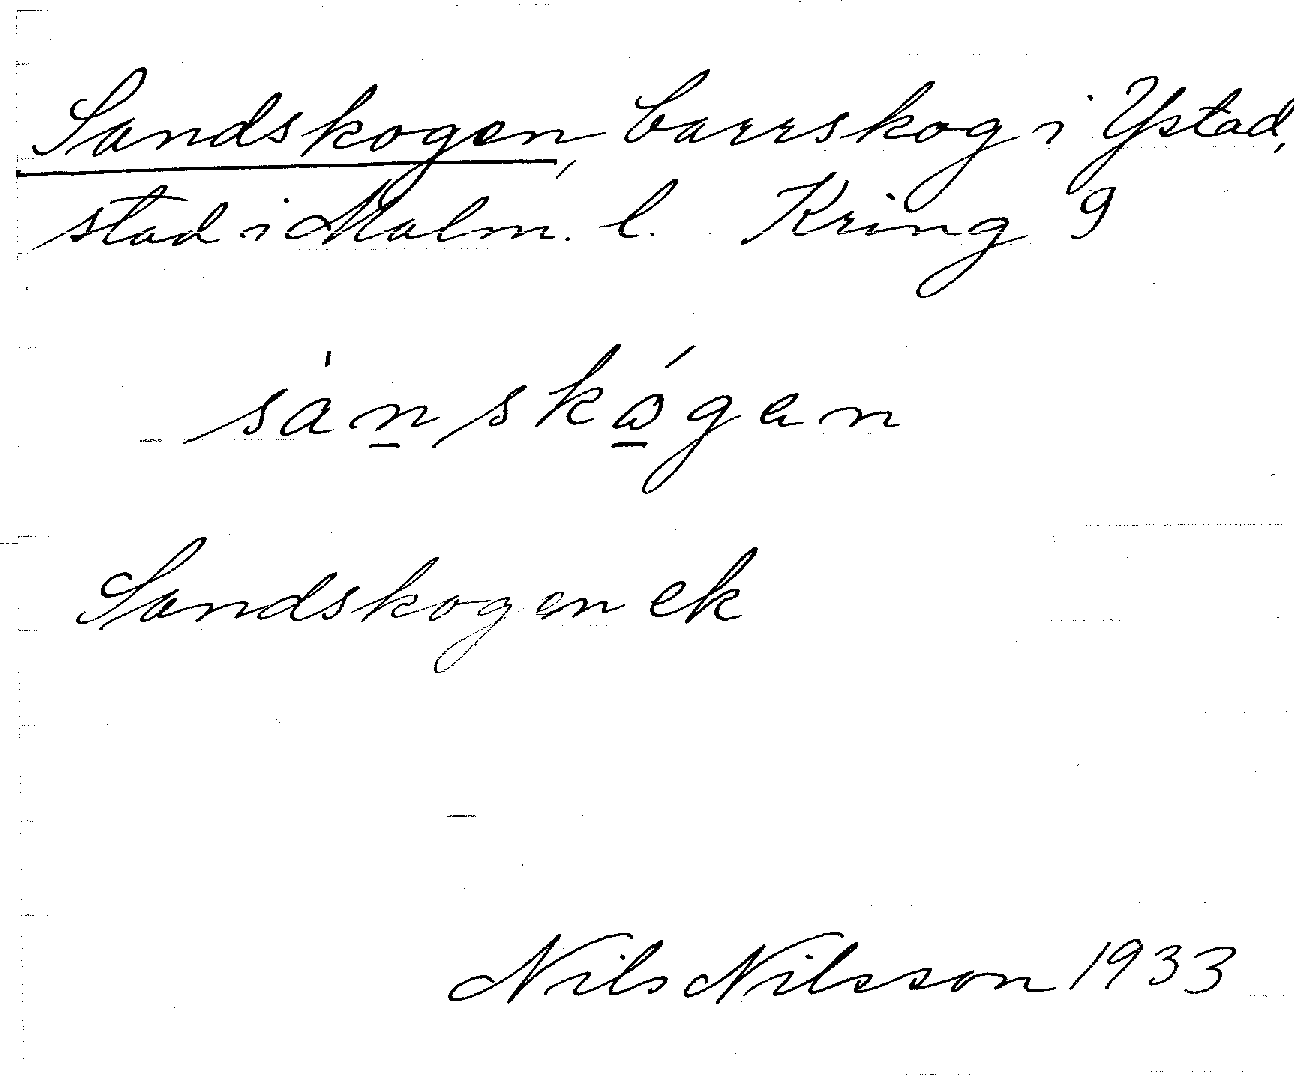 Sandskogen, barrskog i Ystad,
stad i Malm. l. Kring 9
sànskógen
Sandskogen ek
Nils Nilsson 1933